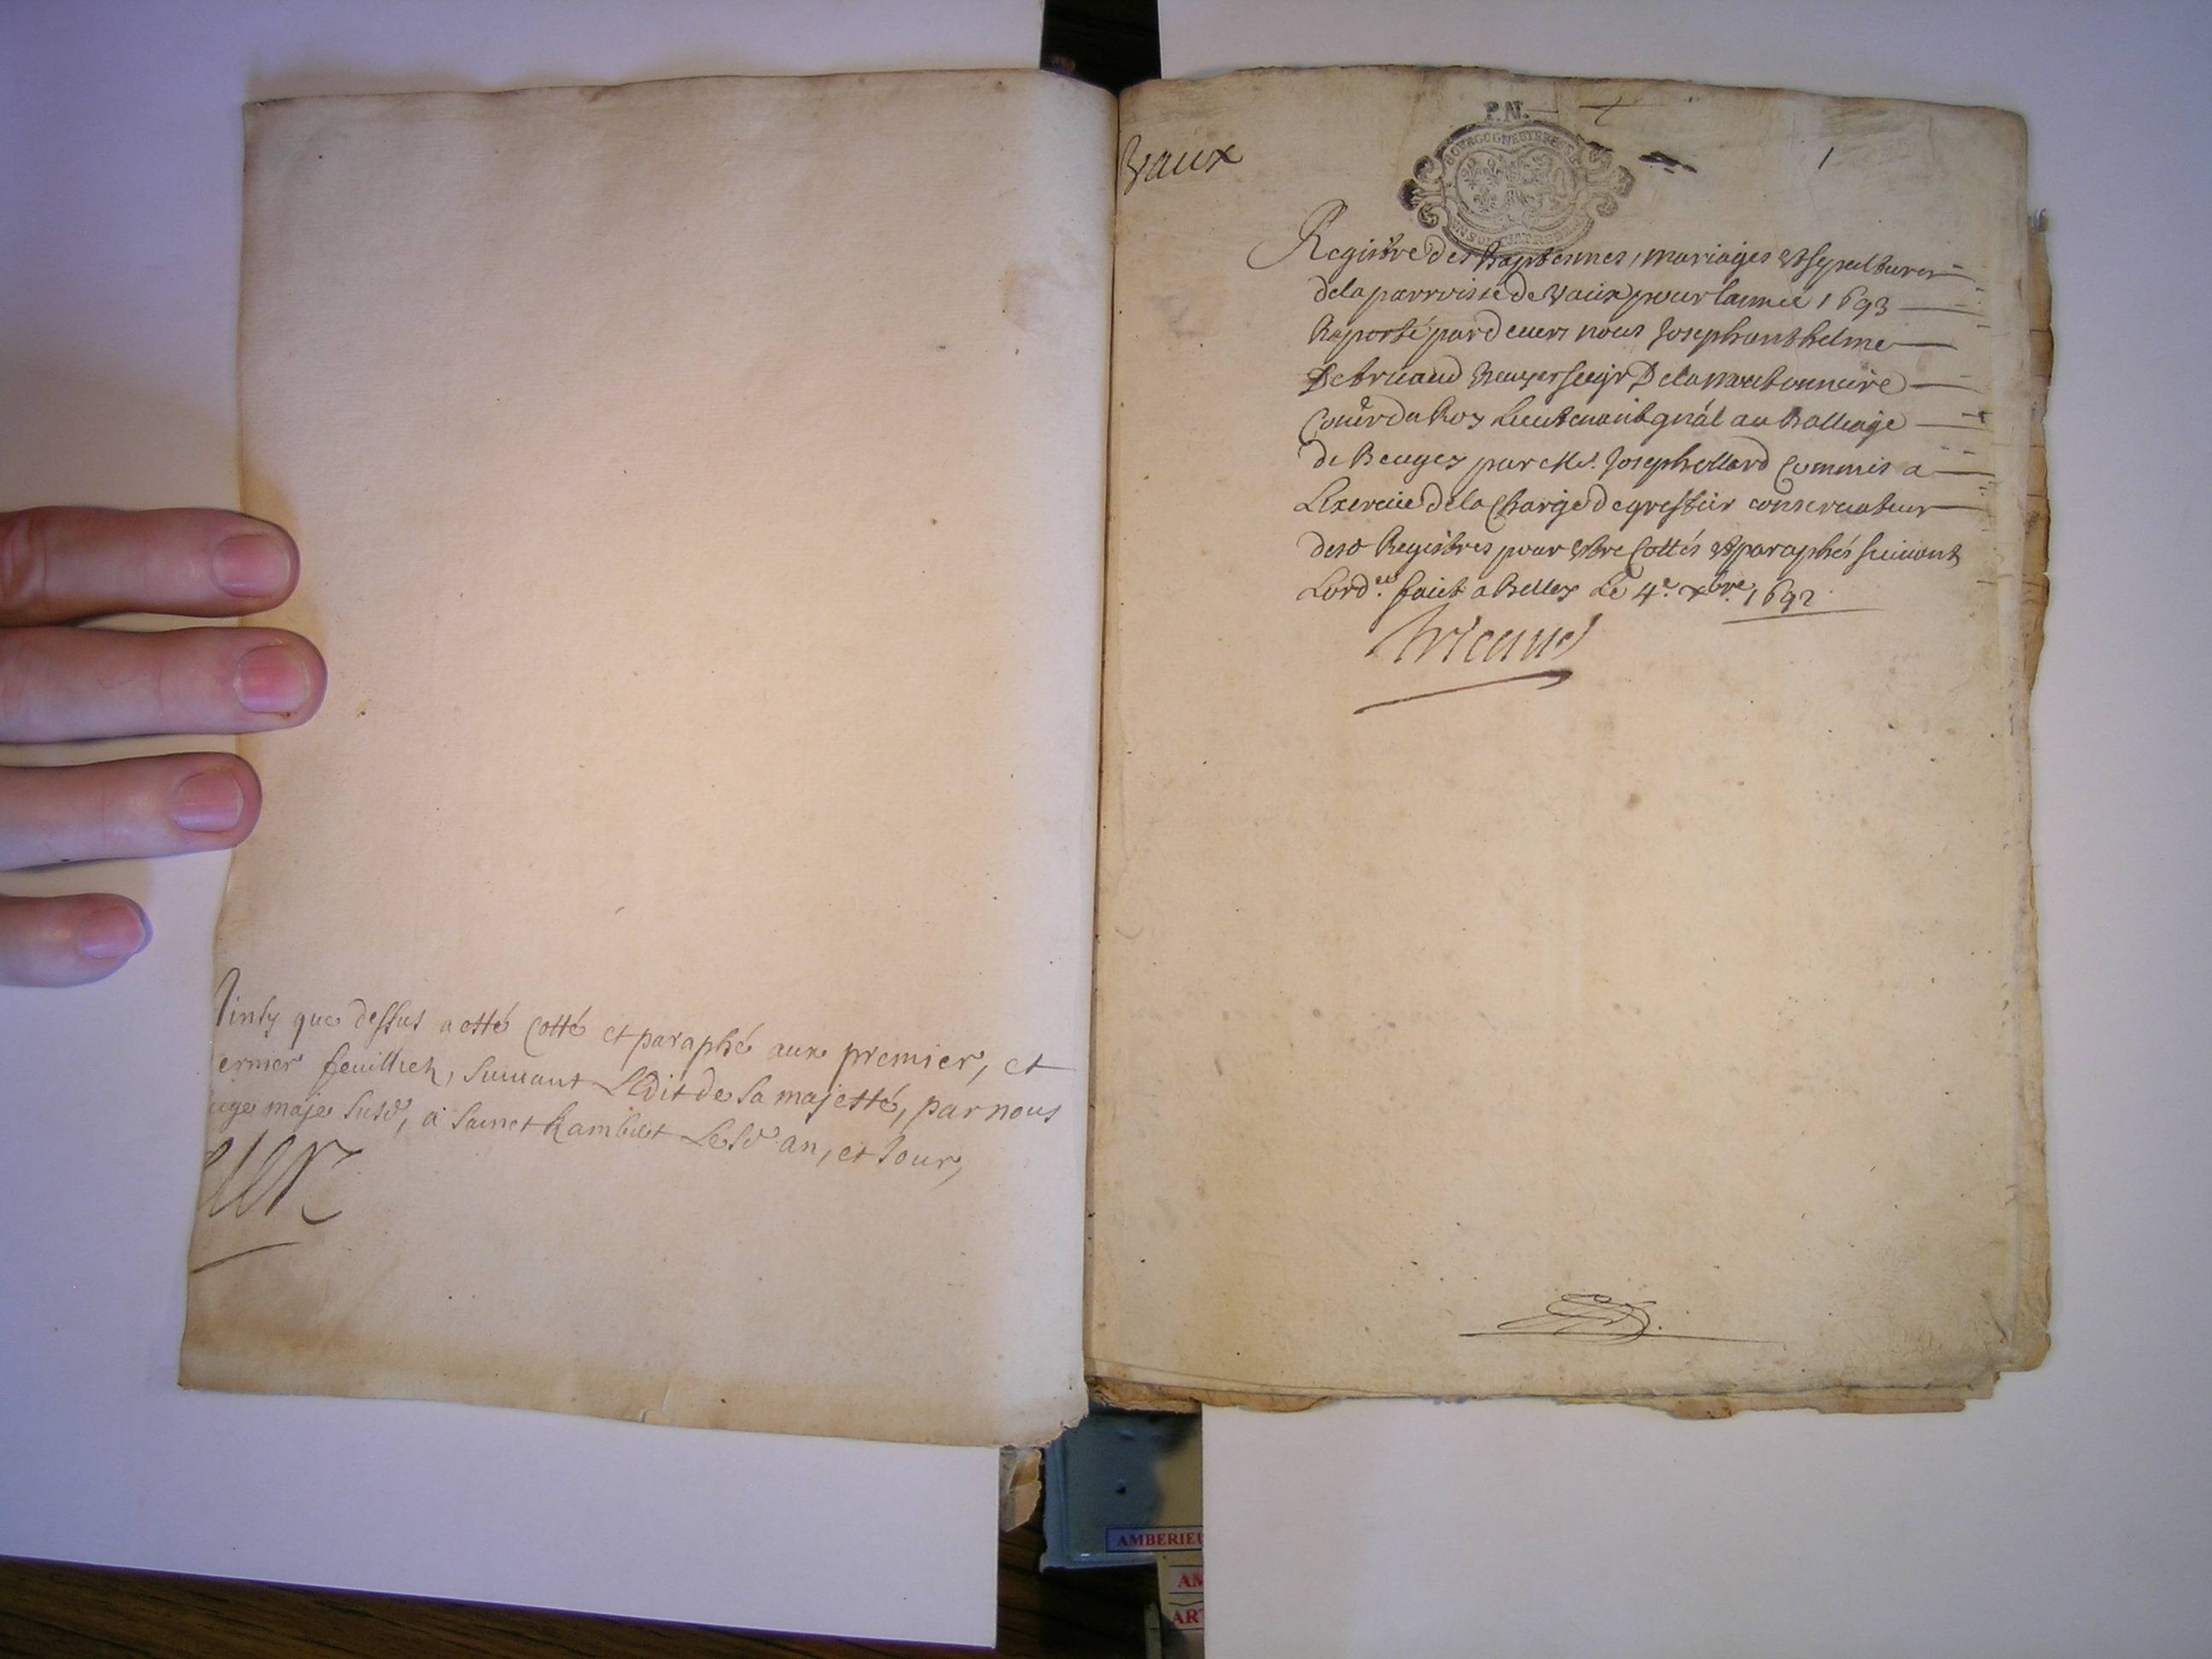 Ainsy que dessus a esté cotté et paraphé aux premier, et
ernier feuillietz, suivant L'Edit de sa majesté, par nous
uge maje susd, a Sainct Rambert Lesd an, et Jour,
Vaux
P.N.
1
BOURGOGNE BRESSE
Registre des Baptesmes, mariages et sepultures
dela parroisse de Vaux pour lannee 1693
Raporté pardevers nous Joseph anthelme
De tricaud Escuyer seigr De la
Coner du Roy Lieutenant gnal au Balliage
de Beugey par Me. Joseph Commis a
Lexercice dela Charge de greffier conservateur
desd Registres pour estre Cottés et paraphés suivant
Lord.ce faict a Belley Le 4e. xbre. 1692
Tricaud
AMBERIEU
AM
AR